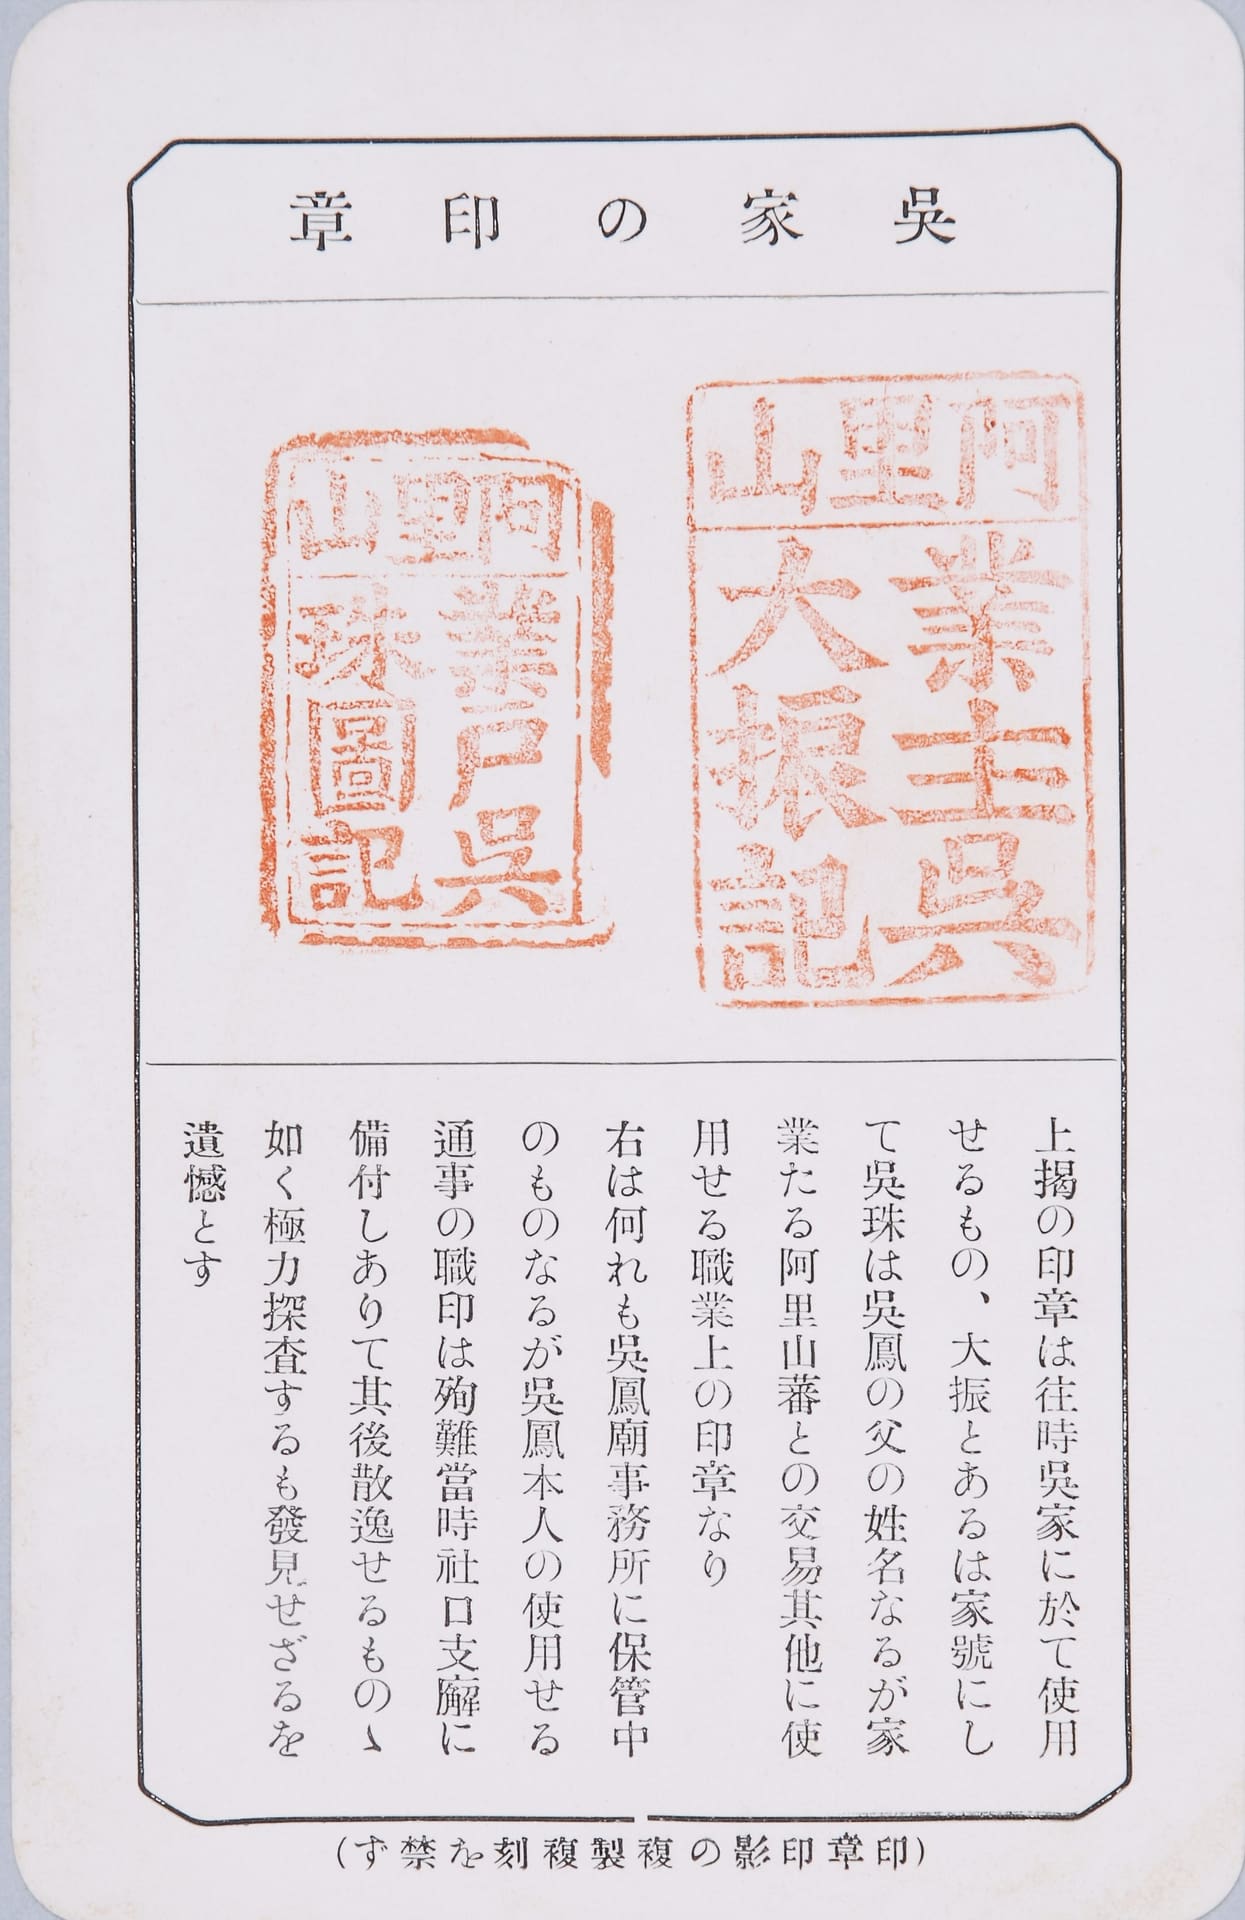 吳家の印章
阿里山
業主吳
大振記
阿里山
業戶吳
珠圖記
上揭の印章は往時吳家に於て使用
せるもの、大振とあるは家號にし
て吳珠は吳鳳の父の姓名なるが家
業たる阿里山蕃との交易其他に使
用せる職業上の印章なり
右は何れも吳鳳廟事務所に保管中
のものなるが吳鳳本人の使用せる
通事の職印は殉難當時社口支廨に
備付しありて其後散逸せるものゝ
如く極力探査するも發見せざるを
遺憾とす
(印章印影の複製複刻を禁ず)